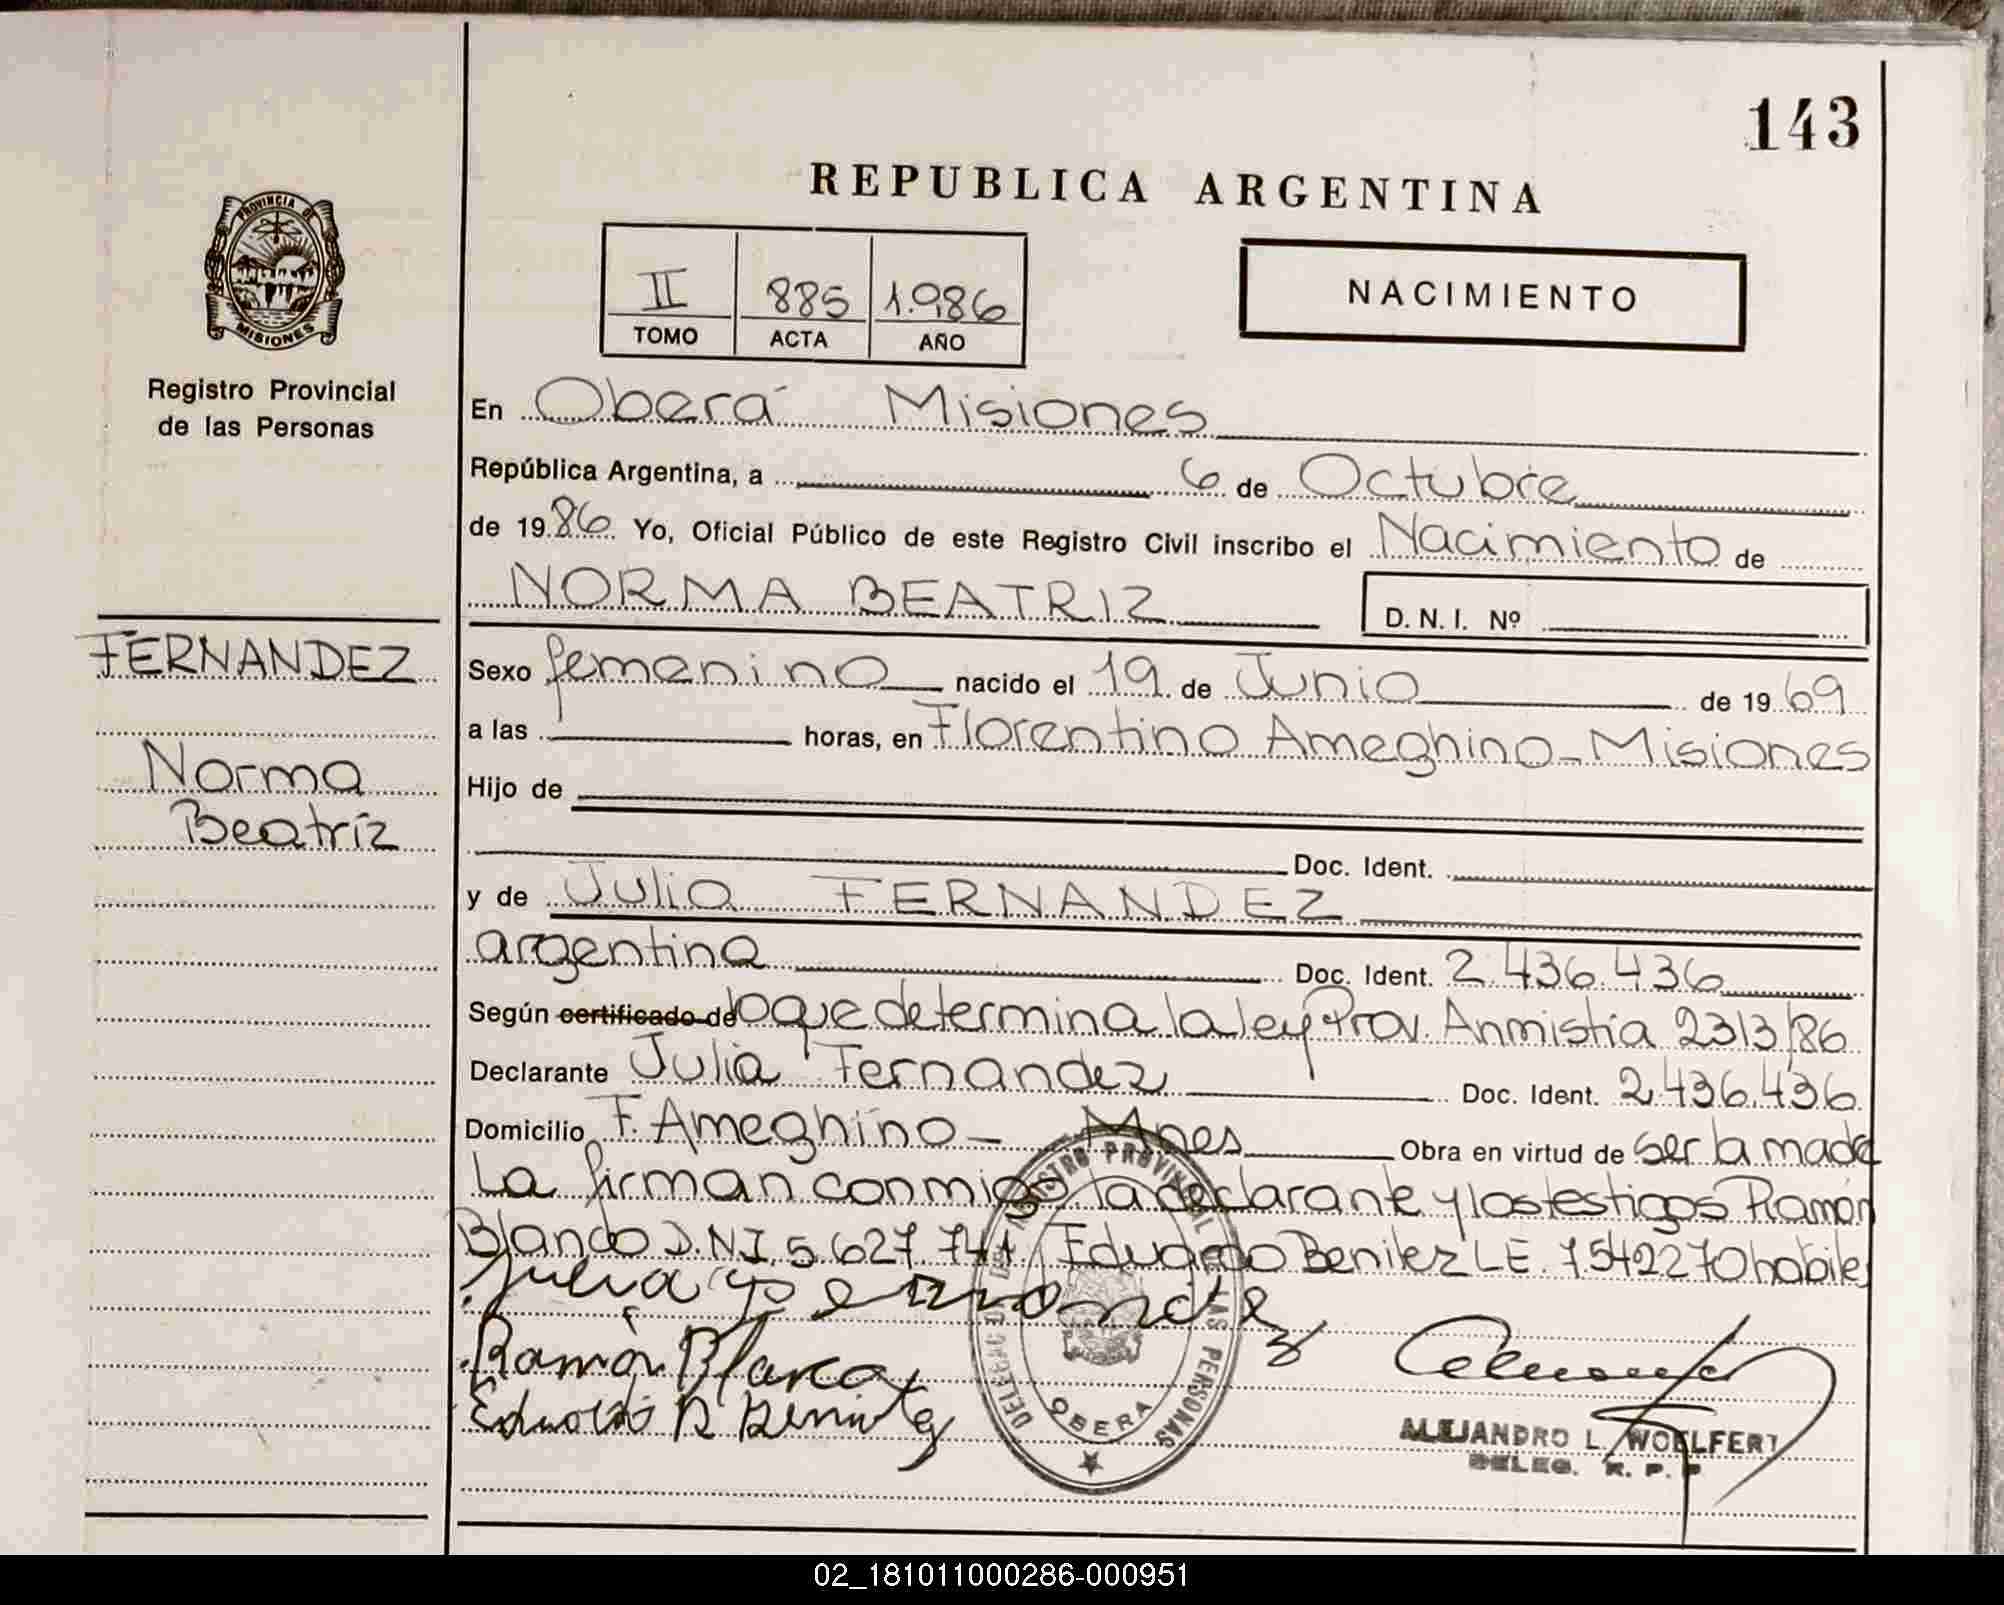 143
REPUBLICA ARGENTINA
PROVINCIA DE
MISIONES
Registro Provincial
de las Personas
II 885 1.986
TOMO ACTA AÑO
NACIMIENTO
En Oberá Misiones
República Argentina, a 6 de Octubre
de 1986 Yo, Oficial Público de este Registro Civil inscribo el Nacimiento de
NORMA BEATRIZ D.N.I. Nº
FERNANDEZ
Norma
Beatríz
Sexo femenino nacido el 19 de Junio de 1969
a las horas, en Florentino Ameghino - Misiones
Hijo de
Doc. Ident.
y de Julia FERNANDEZ
argentina Doc. Ident. 2.436.436
Según certificado de lo que determina la ley Prov. Anmistía 2313/86
Declarante Julia Fernandez Doc. Ident. 2.436.436
Domicilio F. Ameghino - Mnes Obra en virtud de ser la madre
La firman conmigo la declarante y los testigos Ramón
Blanco D.N.I. 5.627.741 Eduardo Benitez L.E. 7542270 habiles
Julia Fernandez
Ramón Blanco
Eduardo R Benitez
DELEGACION DEL REGISTRO PROVINCIAL DE LAS PERSONAS
OBERA
ALEJANDRO L. WOELFERT
DELEG. R. P. P
02_181011000286-000951